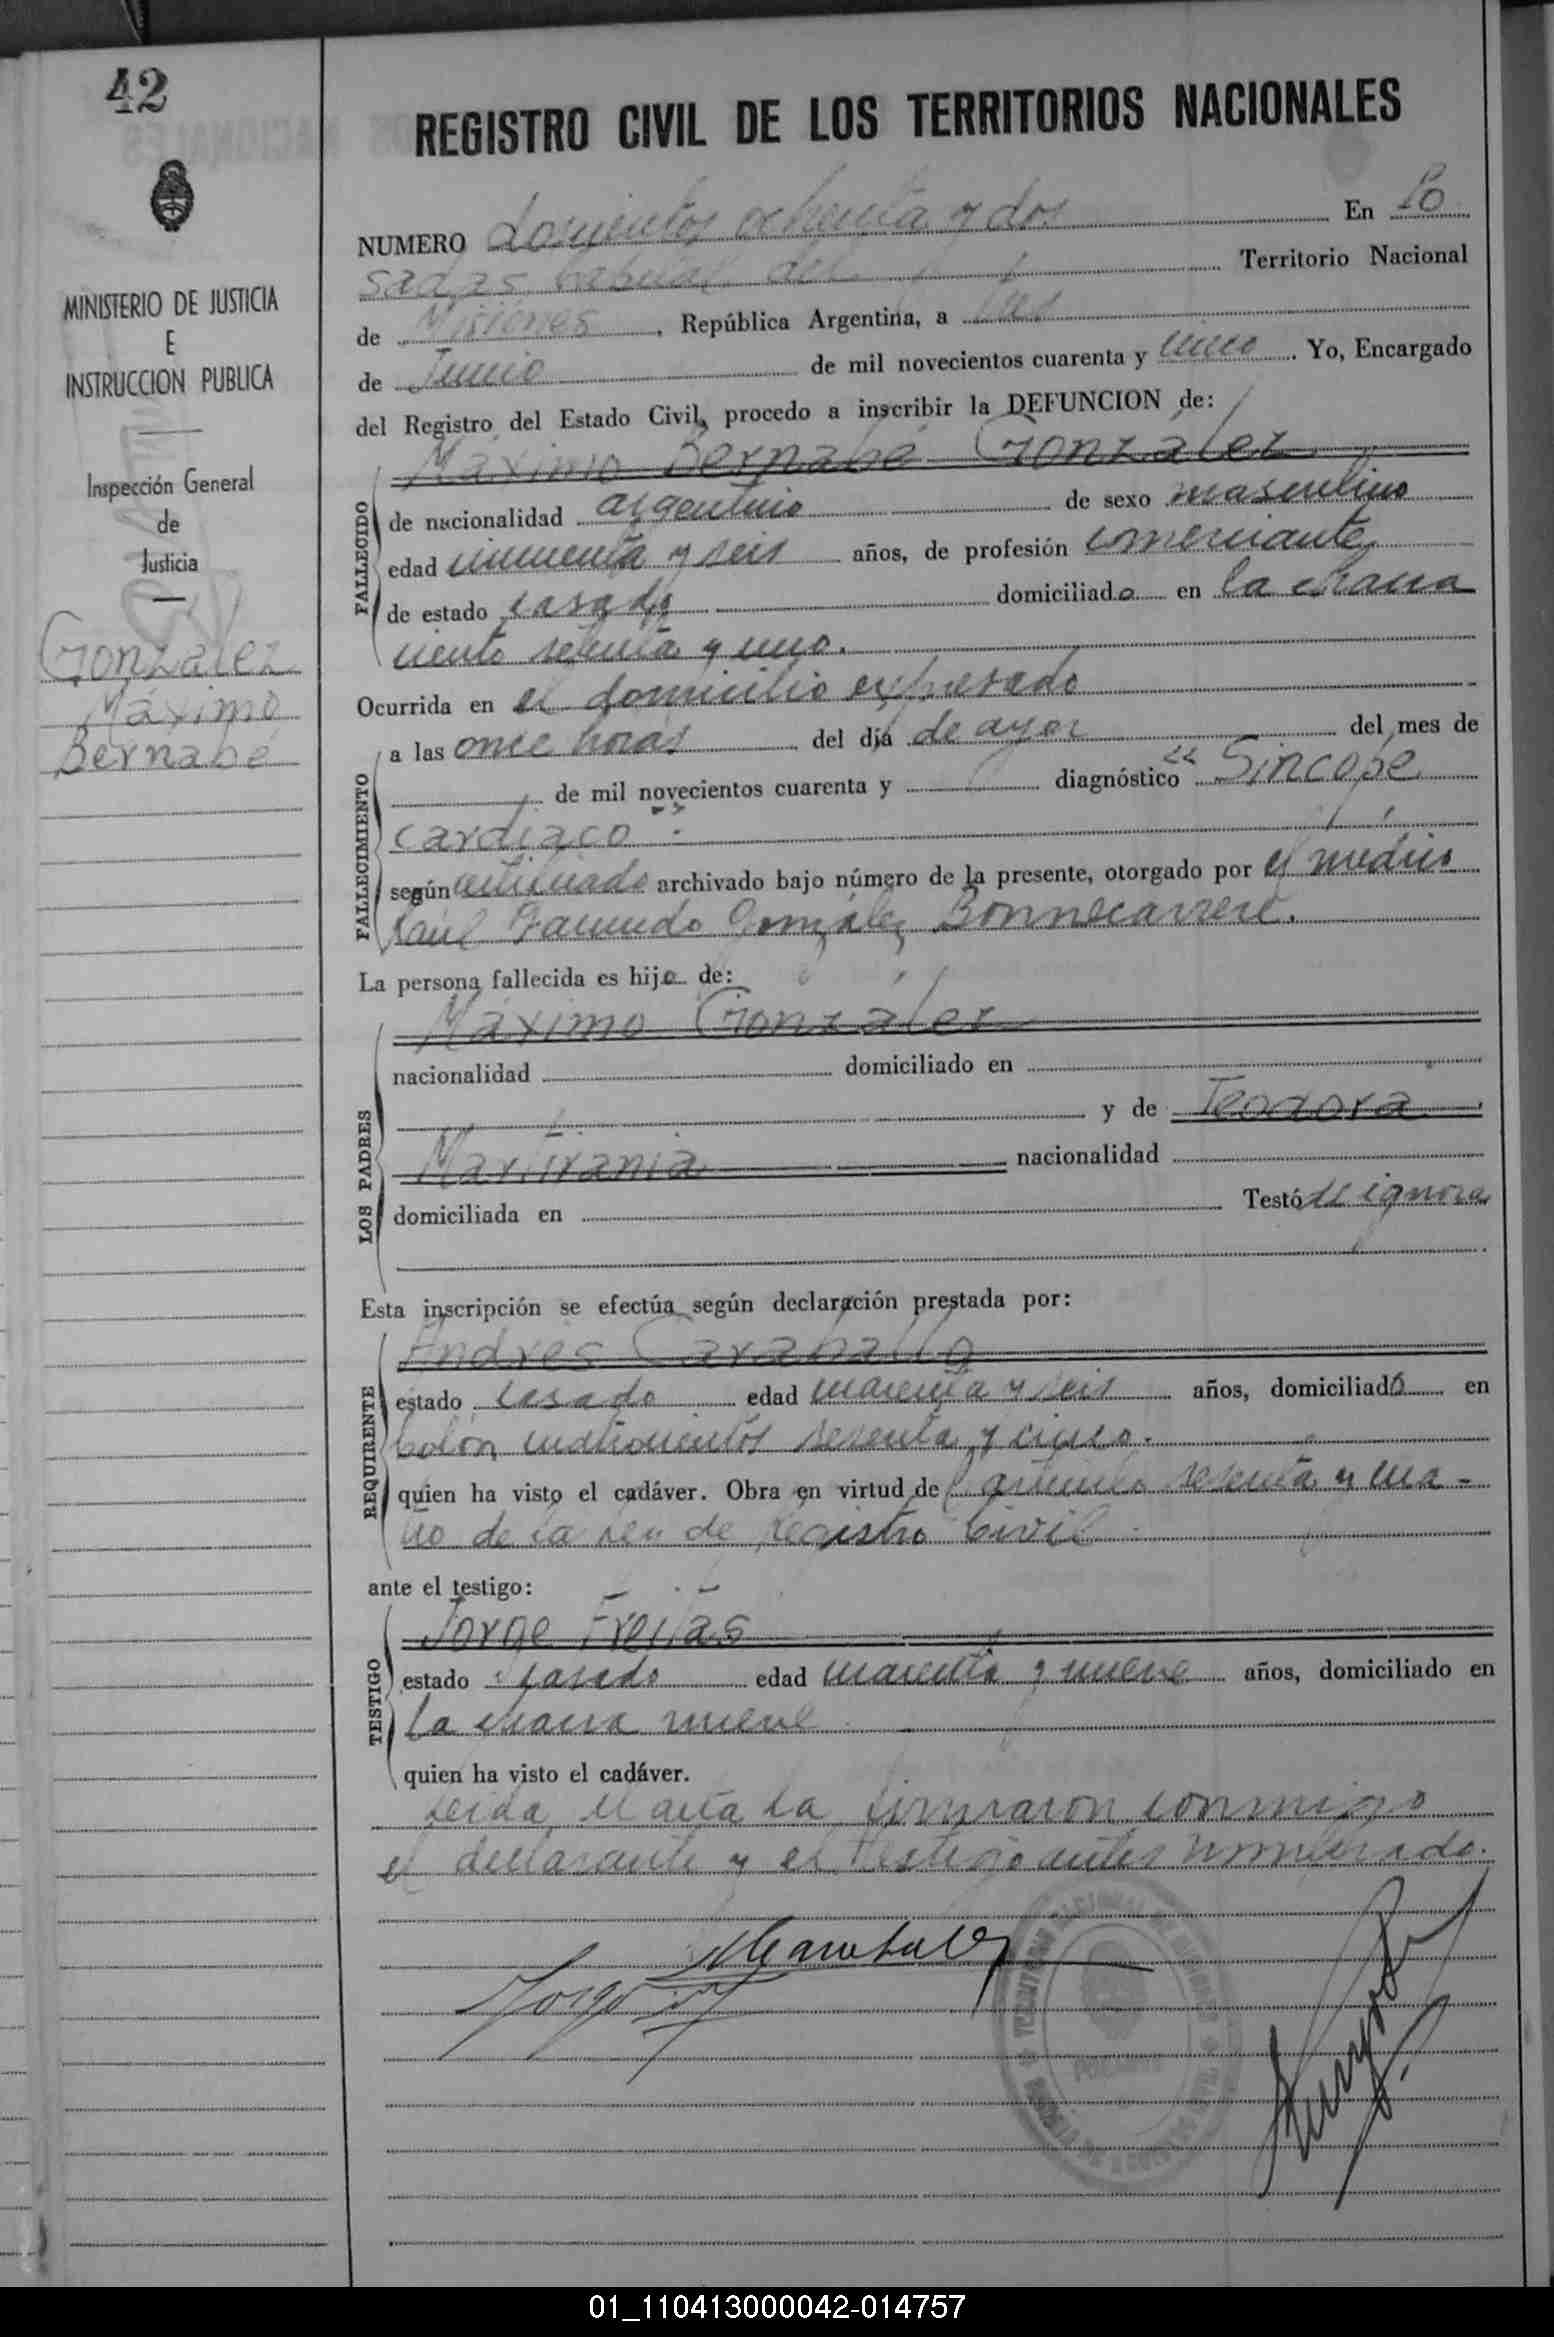 42
REGISTRO CIVIL DE LOS TERRITORIOS NACIONALES
NUMERO Doscientos ochenta y dos En Po
sadas, capital del Territorio Nacional
de Misiones, República Argentina, a tres
de Junio de mil novecientos cuarenta y cinco. Yo, Encargado
del Registro del Estado Civil, procedo a inscribir la DEFUNCION de:
MINISTERIO DE JUSTICIA
E
INSTRUCCION PUBLICA
Inspección General
de
Justicia
González
Máximo
Bernabé
FALLECIDO
Máximo Bernabé González
de nacionalidad argentino de sexo masculino
edad cincuenta y seis años, de profesión comerciante
de estado casado domiciliado en la chacra
ciento setenta y uno.
Ocurrida en el domicilio expresado
FALLECIMIENTO
a las once horas del día de ayer del mes de
de mil novecientos cuarenta y diagnóstico "Sincope
cardiaco".
según certificado archivado bajo número de la presente, otorgado por el médico
Raúl Facundo González Bonnecarrere.
La persona fallecida es hijo de:
LOS PADRES
Máximo González
nacionalidad domiciliado en
y de Teodora
Martirania
nacionalidad
domiciliada en Testó se ignora
Esta inscripción se efectúa según declaración prestada por:
REQUIRENTE
Andrés Caraballo
estado casado edad cuarenta y seis años, domiciliado en
Colón, cuatrocientos sesenta y cinco.
quien ha visto el cadáver. Obra en virtud de artículo sesenta y cua-
tro de la Ley de Registro Civil
ante el testigo:
TESTIGO
Jorge Freitas
estado casado edad cuarenta y nueve años, domiciliado en
la chacra nueve
quien ha visto el cadáver.
Leída el acta la firmaron conmigo
el declarante y el testigo antes nombrado.
01_110413000042-014757